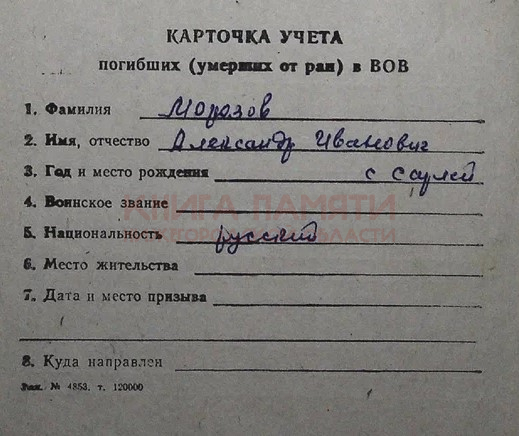 КАРТОЧКА УЧЕТА
погибших (умерших от ран) в ВОВ
1. Фамилия Морозов
2. Имя, отчество Александр Иванович
3. Год и место рождения с Сарлей
4. Воинское звание
КНИГА ПАМЯТИ
5. Национальность русский
6. Место жительства
7. Дата и место призыва
8. Куда направлен
Зак. № 4853. т. 120000